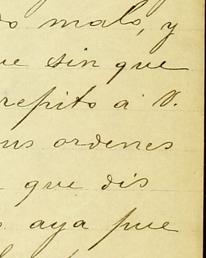 do malo, y
ue sin que
repito á V.
sus ordenes
que dis
s aya pue